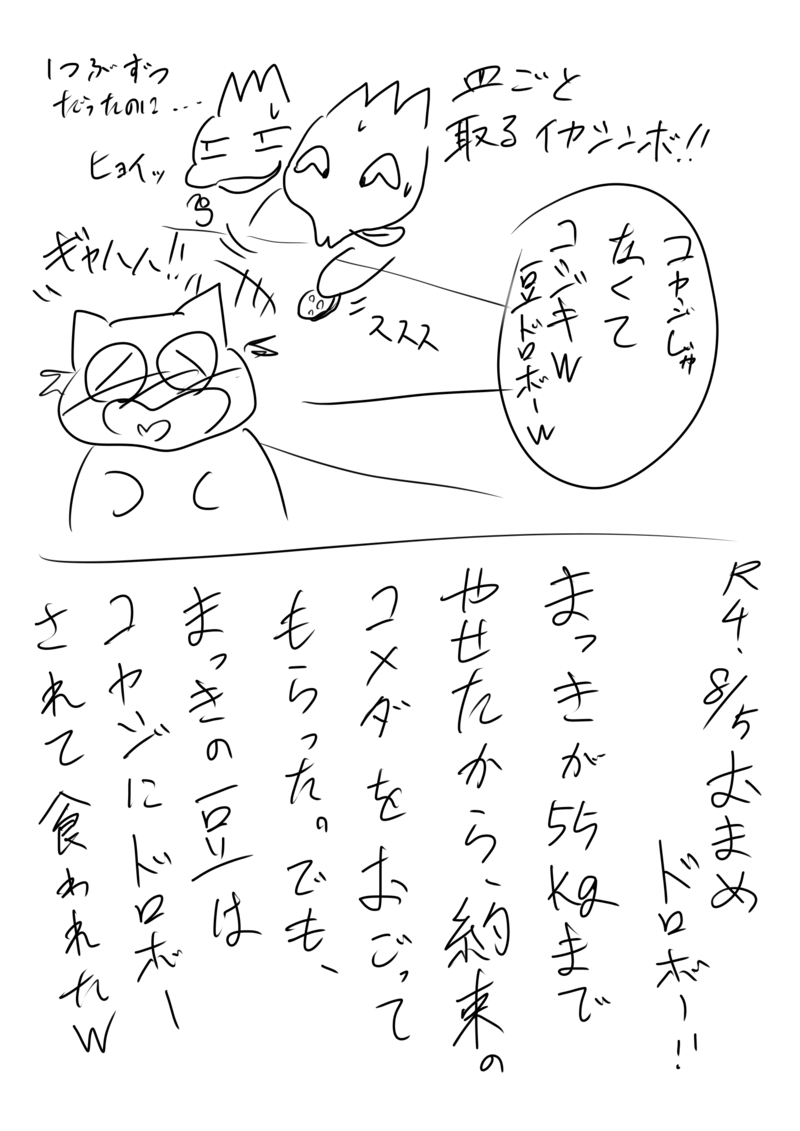 皿ごと
取るイカシンボ!!
1つぶずつ
だったのに...
ヒョイッ
ギャハハ!!
ススス
コヤジじゃ
なくて
コジキW
豆ドロボーW
R4.8/5おまめ
ドロボー!!
まっきが55kgまで
やせたから、約束の
コメダをおごって
もらった。でも、
まっきの豆は
コヤジにドロボー
されて食われたW